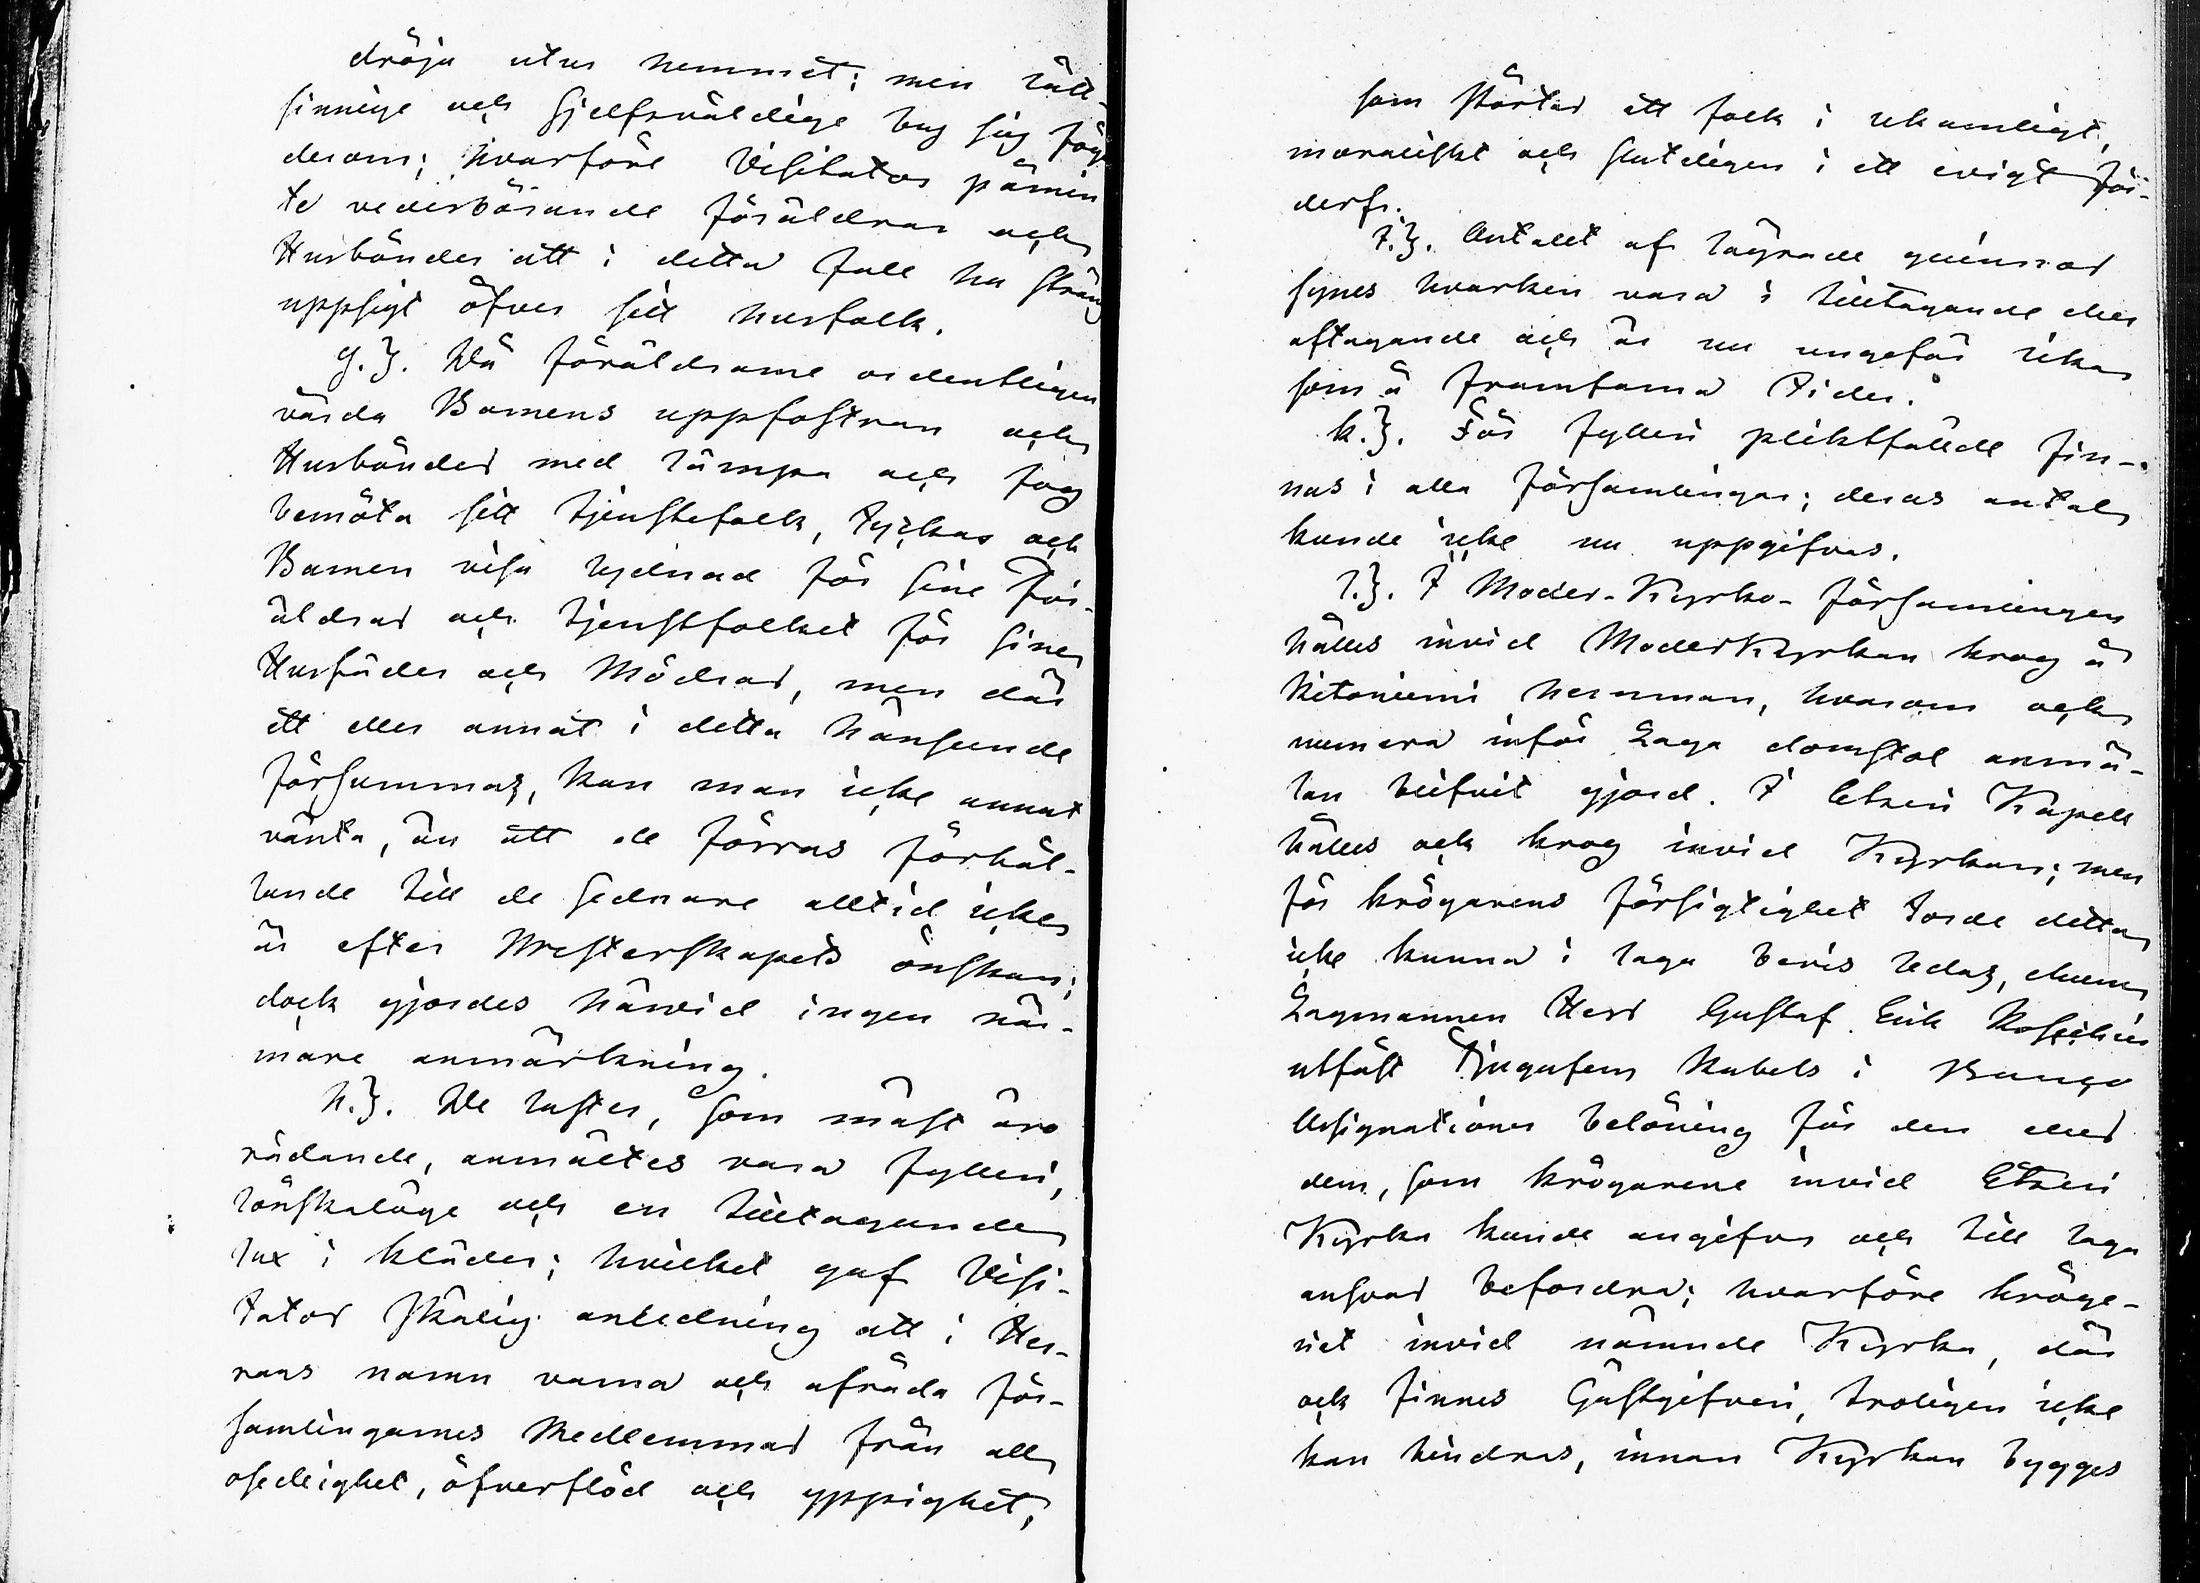 dröja utur hemmet; men lätt-
sinnige och sjelfsväldige bry sig föga
derom; hvarföre Visitator påmin
te vederbörande föräldrar och
Husbönder att i detta fall ha sträng
uppsigt öfver sitt husfolk.
g.}. Då föräldrarne ordentligen
vårda Barnens uppfostran och
Husbönder med lämpa och fog
bemöta sitt tjenstefolk, tyckas ock
Barnen visa lydnad för sine För-
äldrar och tjenstfolket för sine
Husfäder och Mödrar, men där
ett eller annat i detta hänseende
försummas, kan man icke annat
vänta, än att de förras förhål-
lande till de sednare alltid icke
är efter Presterskapets önskan;
dock gjordes härvid ingen när-
mare anmärkning.
h.}. De laster, som mäst äro
rådande, anmältes vara fylleri,
lönskaläge och en tilltagande
lux i kläder; hvilket gaf Visi-
tator skälig anledning att i Her-
rans namn varna och afråda för-
samlingarnes Medlemmar från all
osedlighet, öfverflöd och yppighet,
som störtar ett folk i lekamligt,
moraliskt och slutligen i ett evigt för-
derf.
i.}. Antalet af lägrade qvinnor
synes hvarken vara i tilltagande eller
aftagande och är nu ungefär lika
som i framfarna tider.
k.}. För fylleri pliktfällde fin-
nas i alla församlingar; deras antal
kunde icke nu uppgifvas.
l.}. I Moder-Kyrko-församlingen
hålles invid Moderkyrkan krog å
Kitoniemi hemman, hvarom ock
numera inför Laga domstol anmä-
lan blifvit gjord. I Etseri Kapell
hålles ock krog invid Kyrkan; men
för krögarens försigtighet torde detta
icke kunna i laga bevis ledas, ehuru
Lagmannen Herr Gustaf Erik
utfäst Tjugufem Rubels i Banco
Assignationer belöning för den eller
dem, som krögarene invid Etseri
Kyrka kunde angifva och till laga
ansvar befordra; hvarföre kröge-
riet invid nämnde Kyrka, där
ock finnes Gästgifveri, troligen icke
kan hindras, innan Kyrkan bygges